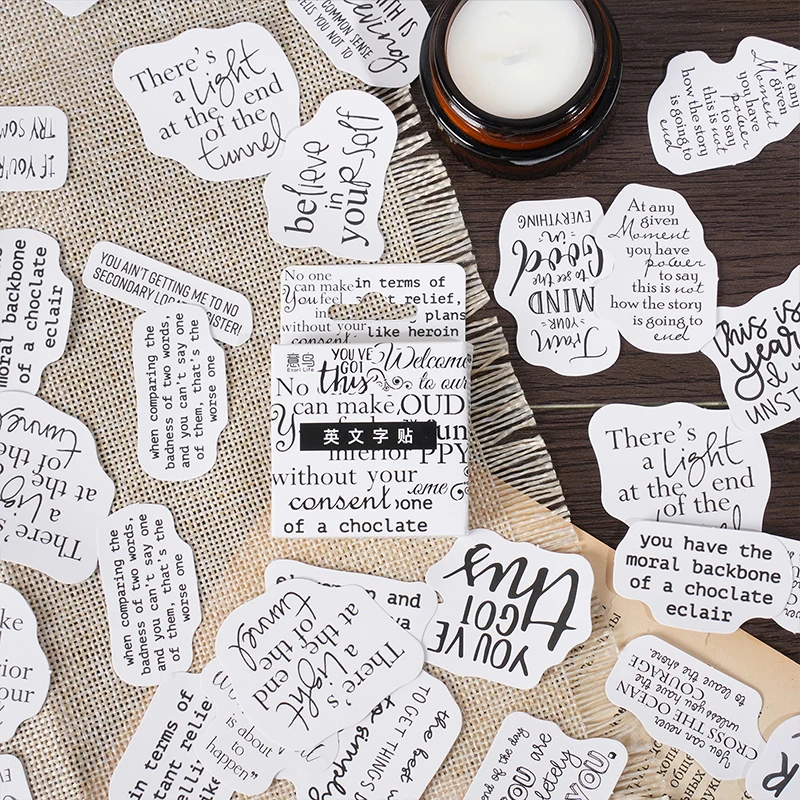 COMMON SENSE
TELLS YOU NOT TO
IS THI
There's
a light
at the end
of the
tunnel
believe
in
yourself
At any
given
Moment
you have
power
to say
this is not
how the story
is going to
end
TRY SOM
IF YOU'R
Train
YOUR
MIND
to see the
Good
=in=
EVERYTHING
At any
given
Moment
you have
power
to say
this is not
how the story
is going to
end
moral backbone
of a choclate
eclair
YOU AIN'T GETTING ME TO NO
SECONDARY LOCA
ISTER!
when comparing the
badness of two words,
and you can't say one
of them, that's the
worse one
No one
can make
You feel
without your
consent
in terms of
relief,
plans
like heroin
意鸟
Esori Life
YOU'VE
GOT
this
Welcome
to our
No
can make
OUD
英文字贴
inferior
PPY
without your
ome
consent
one
of a choclate
this is
year
UNST
There's
a light
at the end
of the
tunnel
There's
a light
at the end
of the
you have the
moral backbone
of a choclate
eclair
when comparing the
badness of two words,
and you can't say one
of them, that's the
worse one
YOU'VE
GOT
this
up and
There's
a light
at the end
of the
tunnel
You can never
CROSS THE OCEAN
unless you have the
COURAGE
to leave the shore.
ke
rior
our
in terms of
tant relie
is about
to
happen"
TO GET THINGS
to simply
the best
end of the day
YOU are
pletely
YOU.